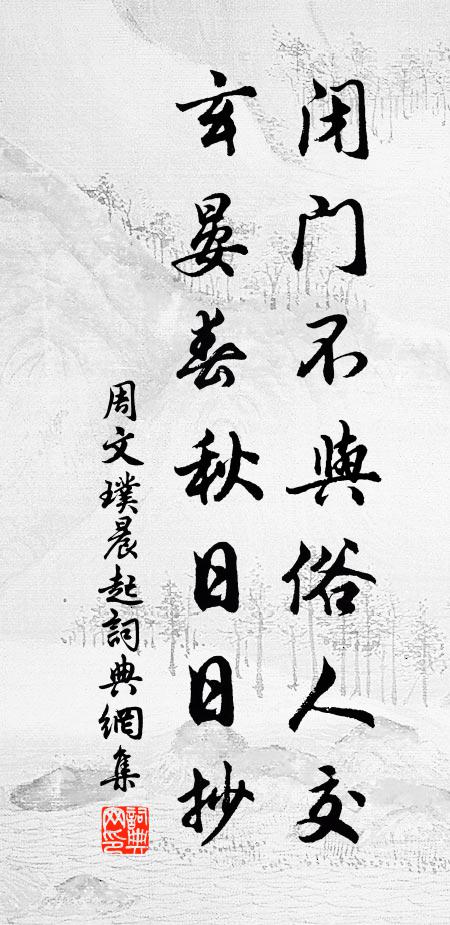 閉門不與俗人交
玄晏春秋日日抄
周文璞晨起詞典網集
詞典網印